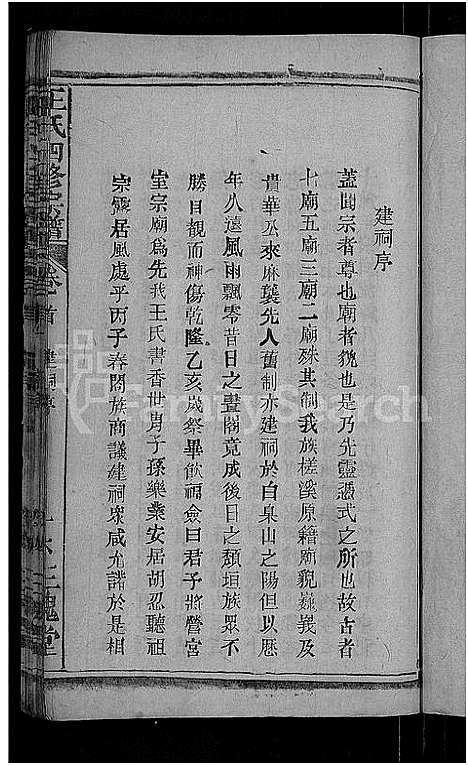 建祠序
蓋聞宗者尊也廟者貌也是乃先靈憑式之所也故古者
七廟五廟三廟二廟殊其制我族槎溪原籍廟貌巍義及
貴華公來麻襲先人舊制亦建祠於白泉山之陽但以歷
年久遠風雨飄零昔日之畫閣竟成後日之頹垣族眾不
勝目觀而神傷乾隆乙亥歲祭畢飲福僉曰君子將營宮
室宗廟為先我王氏書香世胄子孫樂業安居胡忍聽祖
宗靈居風處乎丙子春閤族商議建祠眾咸允諾於是相
王氏四修宗譜 卷首 建祠序 三槐堂
FamilySearch